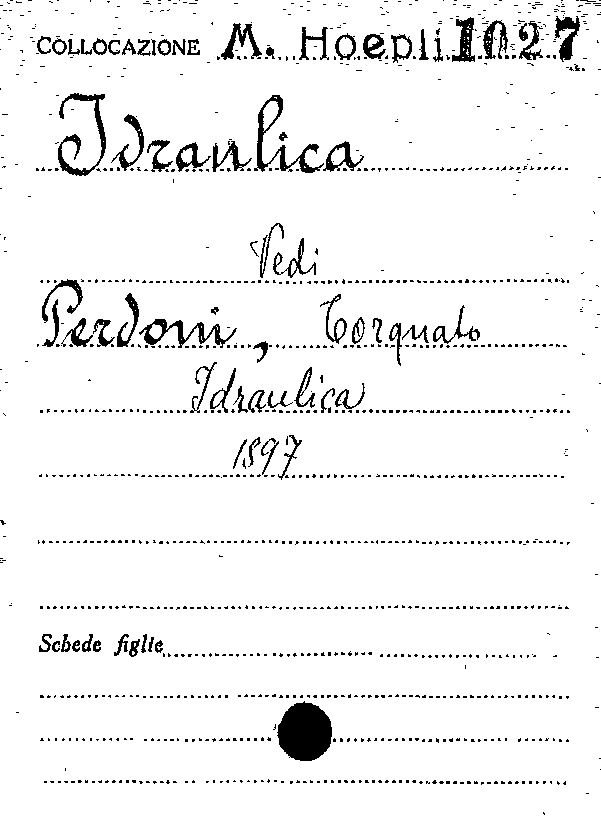 COLLOCAZIONE M. Hoepli 1027
Idraulica
Vedi
Perdoni, Torquato
Idraulica
1897
Schede figlie